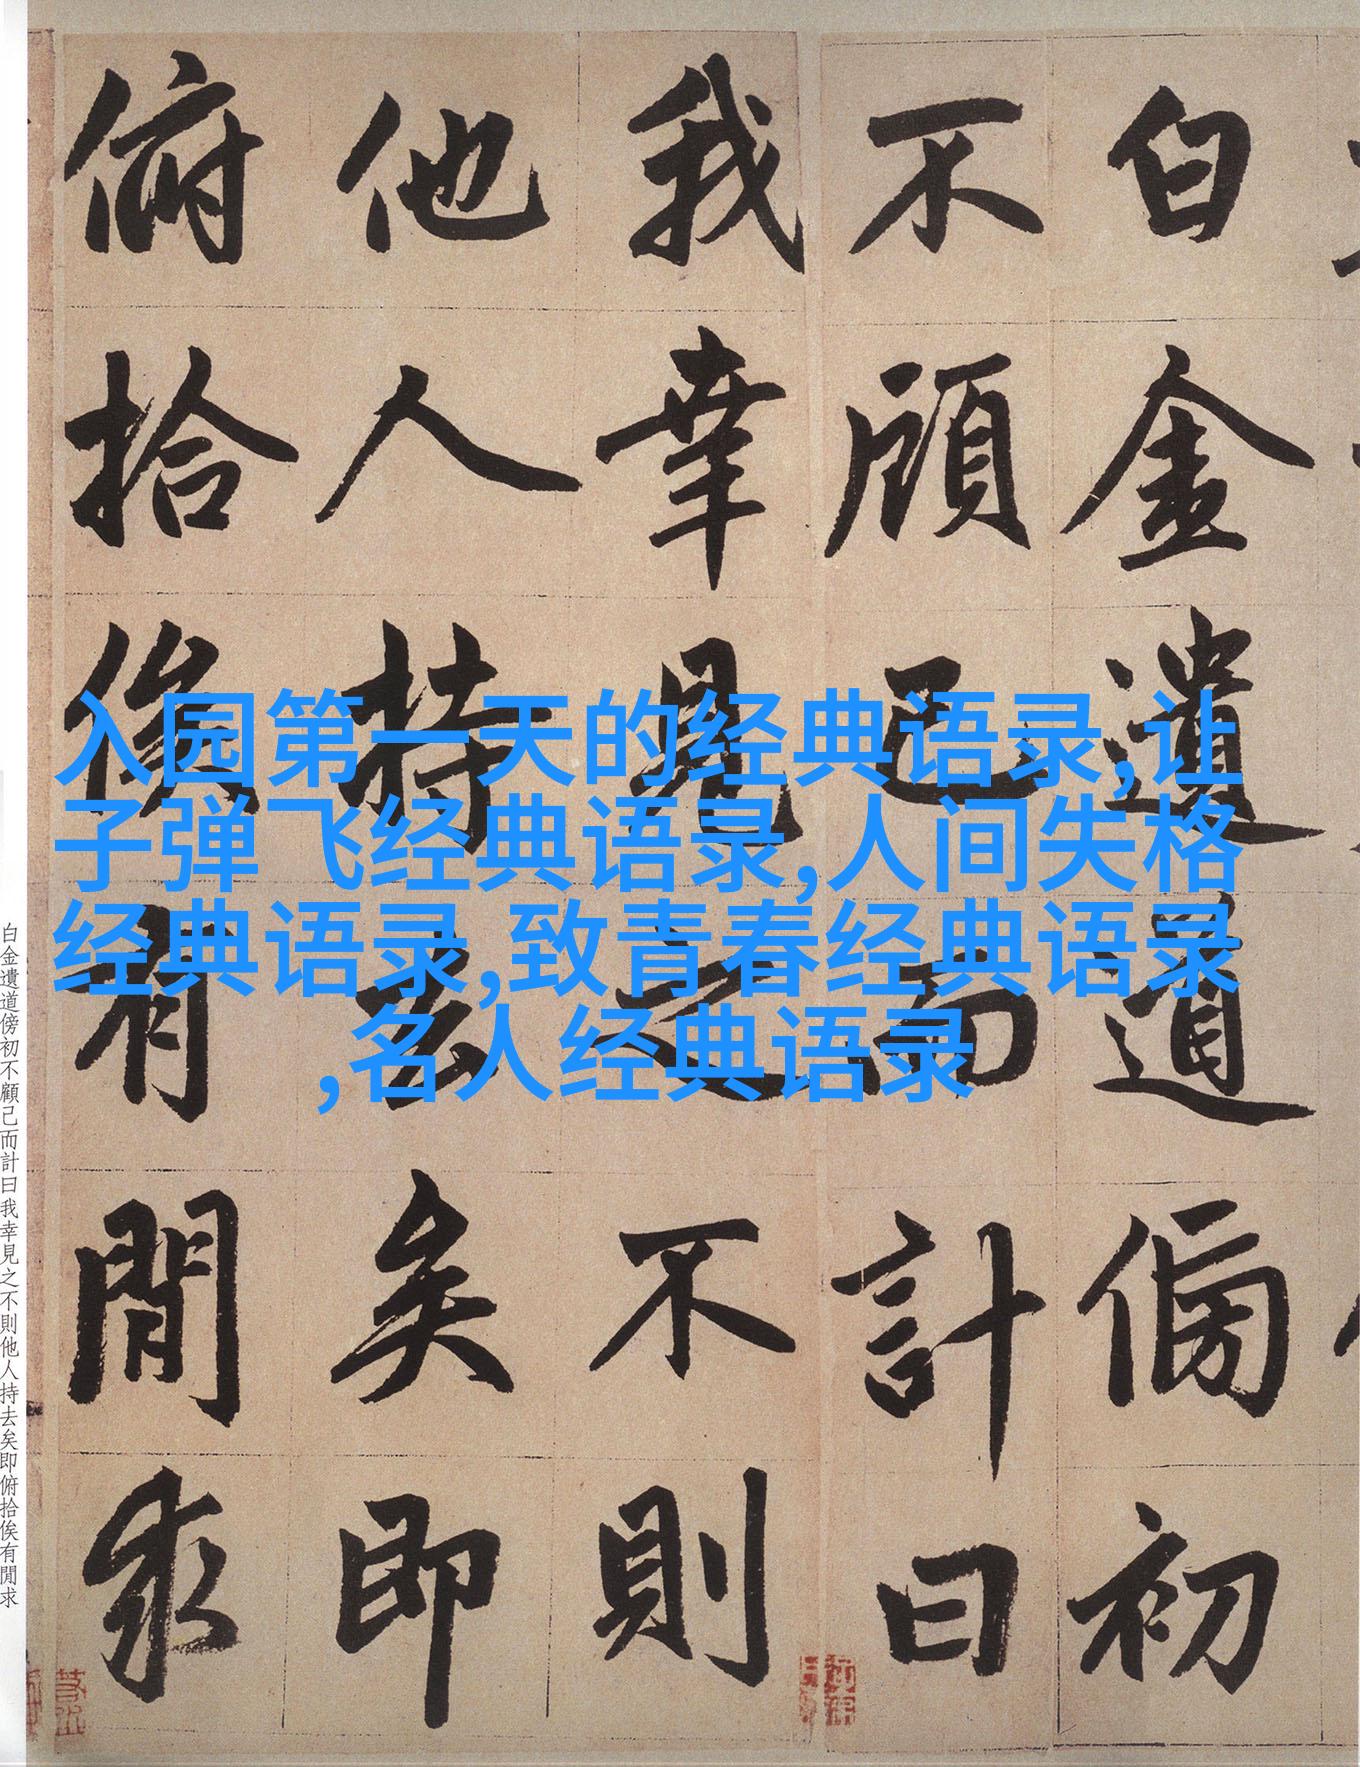 白金遺道傍初
不顧己而計曰
我幸見之不則
他人持去矣即
俯拾俟有閒求
入园第一天的经典语录,让
子弹飞经典语录,人间失格
经典语录,致青春经典语录
,名人经典语录
白金遺道傍初不顧己而計曰我幸見之不則他人持去矣即俯拾俟有閒求